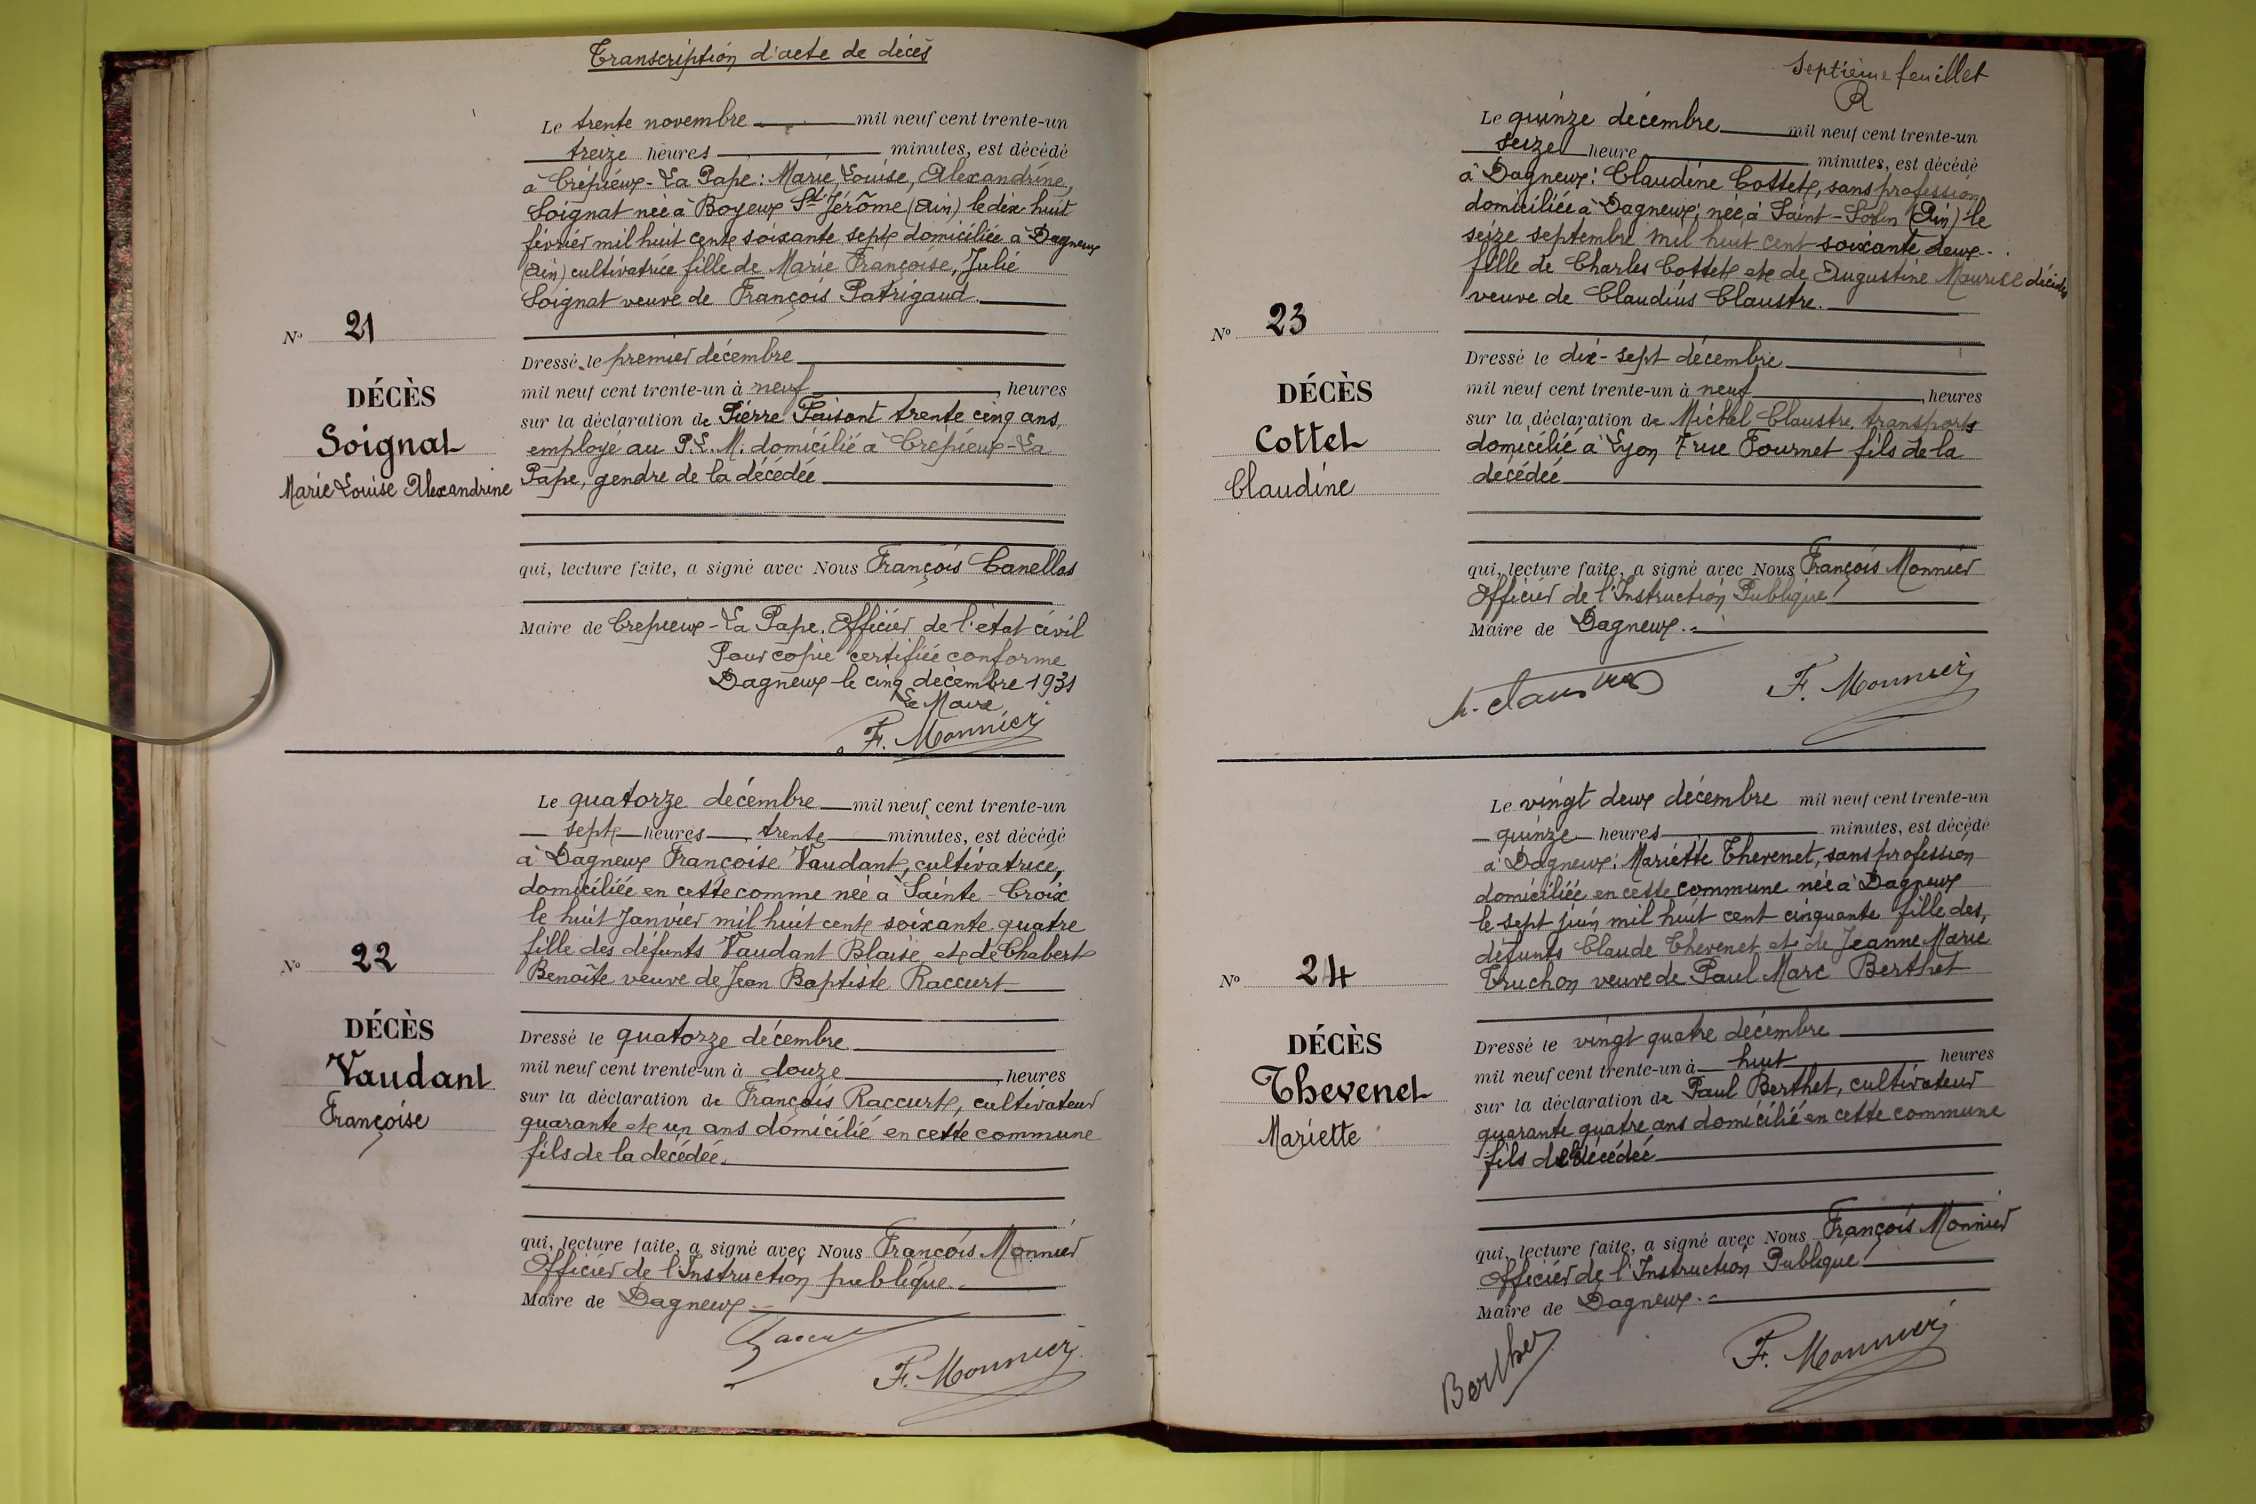 Transcription d'acte de décès
Le trente novembre mil neuf cent trente-un
treize heures minutes, est décédé
à Crépieux-La Pape : Marie, Louise, Alexandrine,
Soignat née à Boyeux St Jérôme (Ain) le dix huit
février mil huit cent soixante sept domiciliée à Dagneux
(Ain) cultivatrice fille de Marie Françoise, Julie
Soignat veuve de François Patrigaud.
No 21
DÉCÈS
Soignat
Marie Louise Alexandrine
Dressé le premier décembre
mil neuf cent trente-un à neuf heures
sur la déclaration de Pierre Faisant trente cinq ans,
employé au P.L.M. domicilié à Crépieux-La
Pape, gendre de la décédée
qui, lecture faite, a signé avec Nous François Canellas
Maire de Crepieux-La Pape. Officier de l'état civil
Pour copie certifiée conforme
Dagneux le cinq décembre 1931
Le Maire
F. Monnier
Le quatorze décembre mil neuf cent trente-un
sept heures trente minutes, est décédé
à Dagneux Françoise Vaudant, cultivatrice,
domiciliée en cette comme née à Sainte-Croix
le huit Janvier mil huit cent soixante quatre
fille des défunts Vaudant Blaise et de Chabert
Benoîte veuve de Jean Baptiste Raccurt
No 22
DÉCÈS
Vaudant
Françoise
Dressé le quatorze décembre
mil neuf cent trente-un à douze heures
sur la déclaration de François Raccurt, cultivateur
quarante et un ans domicilié en cette commune
fils de la décédée.
qui, lecture faite, a signé avec Nous François Monnier
Officier de l'Instruction publique.
Maire de Dagneux.
F. Monnier
Septième feuillet
Le quinze décembre mil neuf cent trente-un
seize heure minutes, est décédé
à Dagneux : Claudine Cottet, sans profession
domiciliée à Dagneux, née à Saint-Sorlin (Ain) le
seize septembre mil huit cent soixante deux
fille de Charles Cottet et de Augustine Maurice décédés
veuve de Claudius Claustre.
No 23
DÉCÈS
Cottet
Claudine
Dressé le dix-sept décembre
mil neuf cent trente-un à neuf heures
sur la déclaration de Michel Claustre, transports
domicilié à Lyon 7 rue Tournet fils de la
décédée
qui, lecture faite, a signé avec Nous François Monnier
Officier de l'Instruction Publique
Maire de Dagneux.
M. Claustre F. Monnier
Le vingt deux décembre mil neuf cent trente-un
quinze heures minutes, est décédé
à Dagneux : Mariette Thevenet, sans profession
domiciliée en cette commune née à Dagneux
le sept juin mil huit cent cinquante fille des,
défunts Claude Thevenet et de Jeanne Marie
Truchon veuve de Paul Marc Berthet
No 24
DÉCÈS
Thevenet
Mariette
Dressé le vingt quatre décembre
mil neuf cent trente-un à huit heures
sur la déclaration de Paul Berthet, cultivateur
quarante quatre ans domicilié en cette commune
fils de la décédée
qui, lecture faite, a signé avec Nous François Monnier
Officier de l'Instruction Publique
Maire de Dagneux.
Berthet F. Monnier